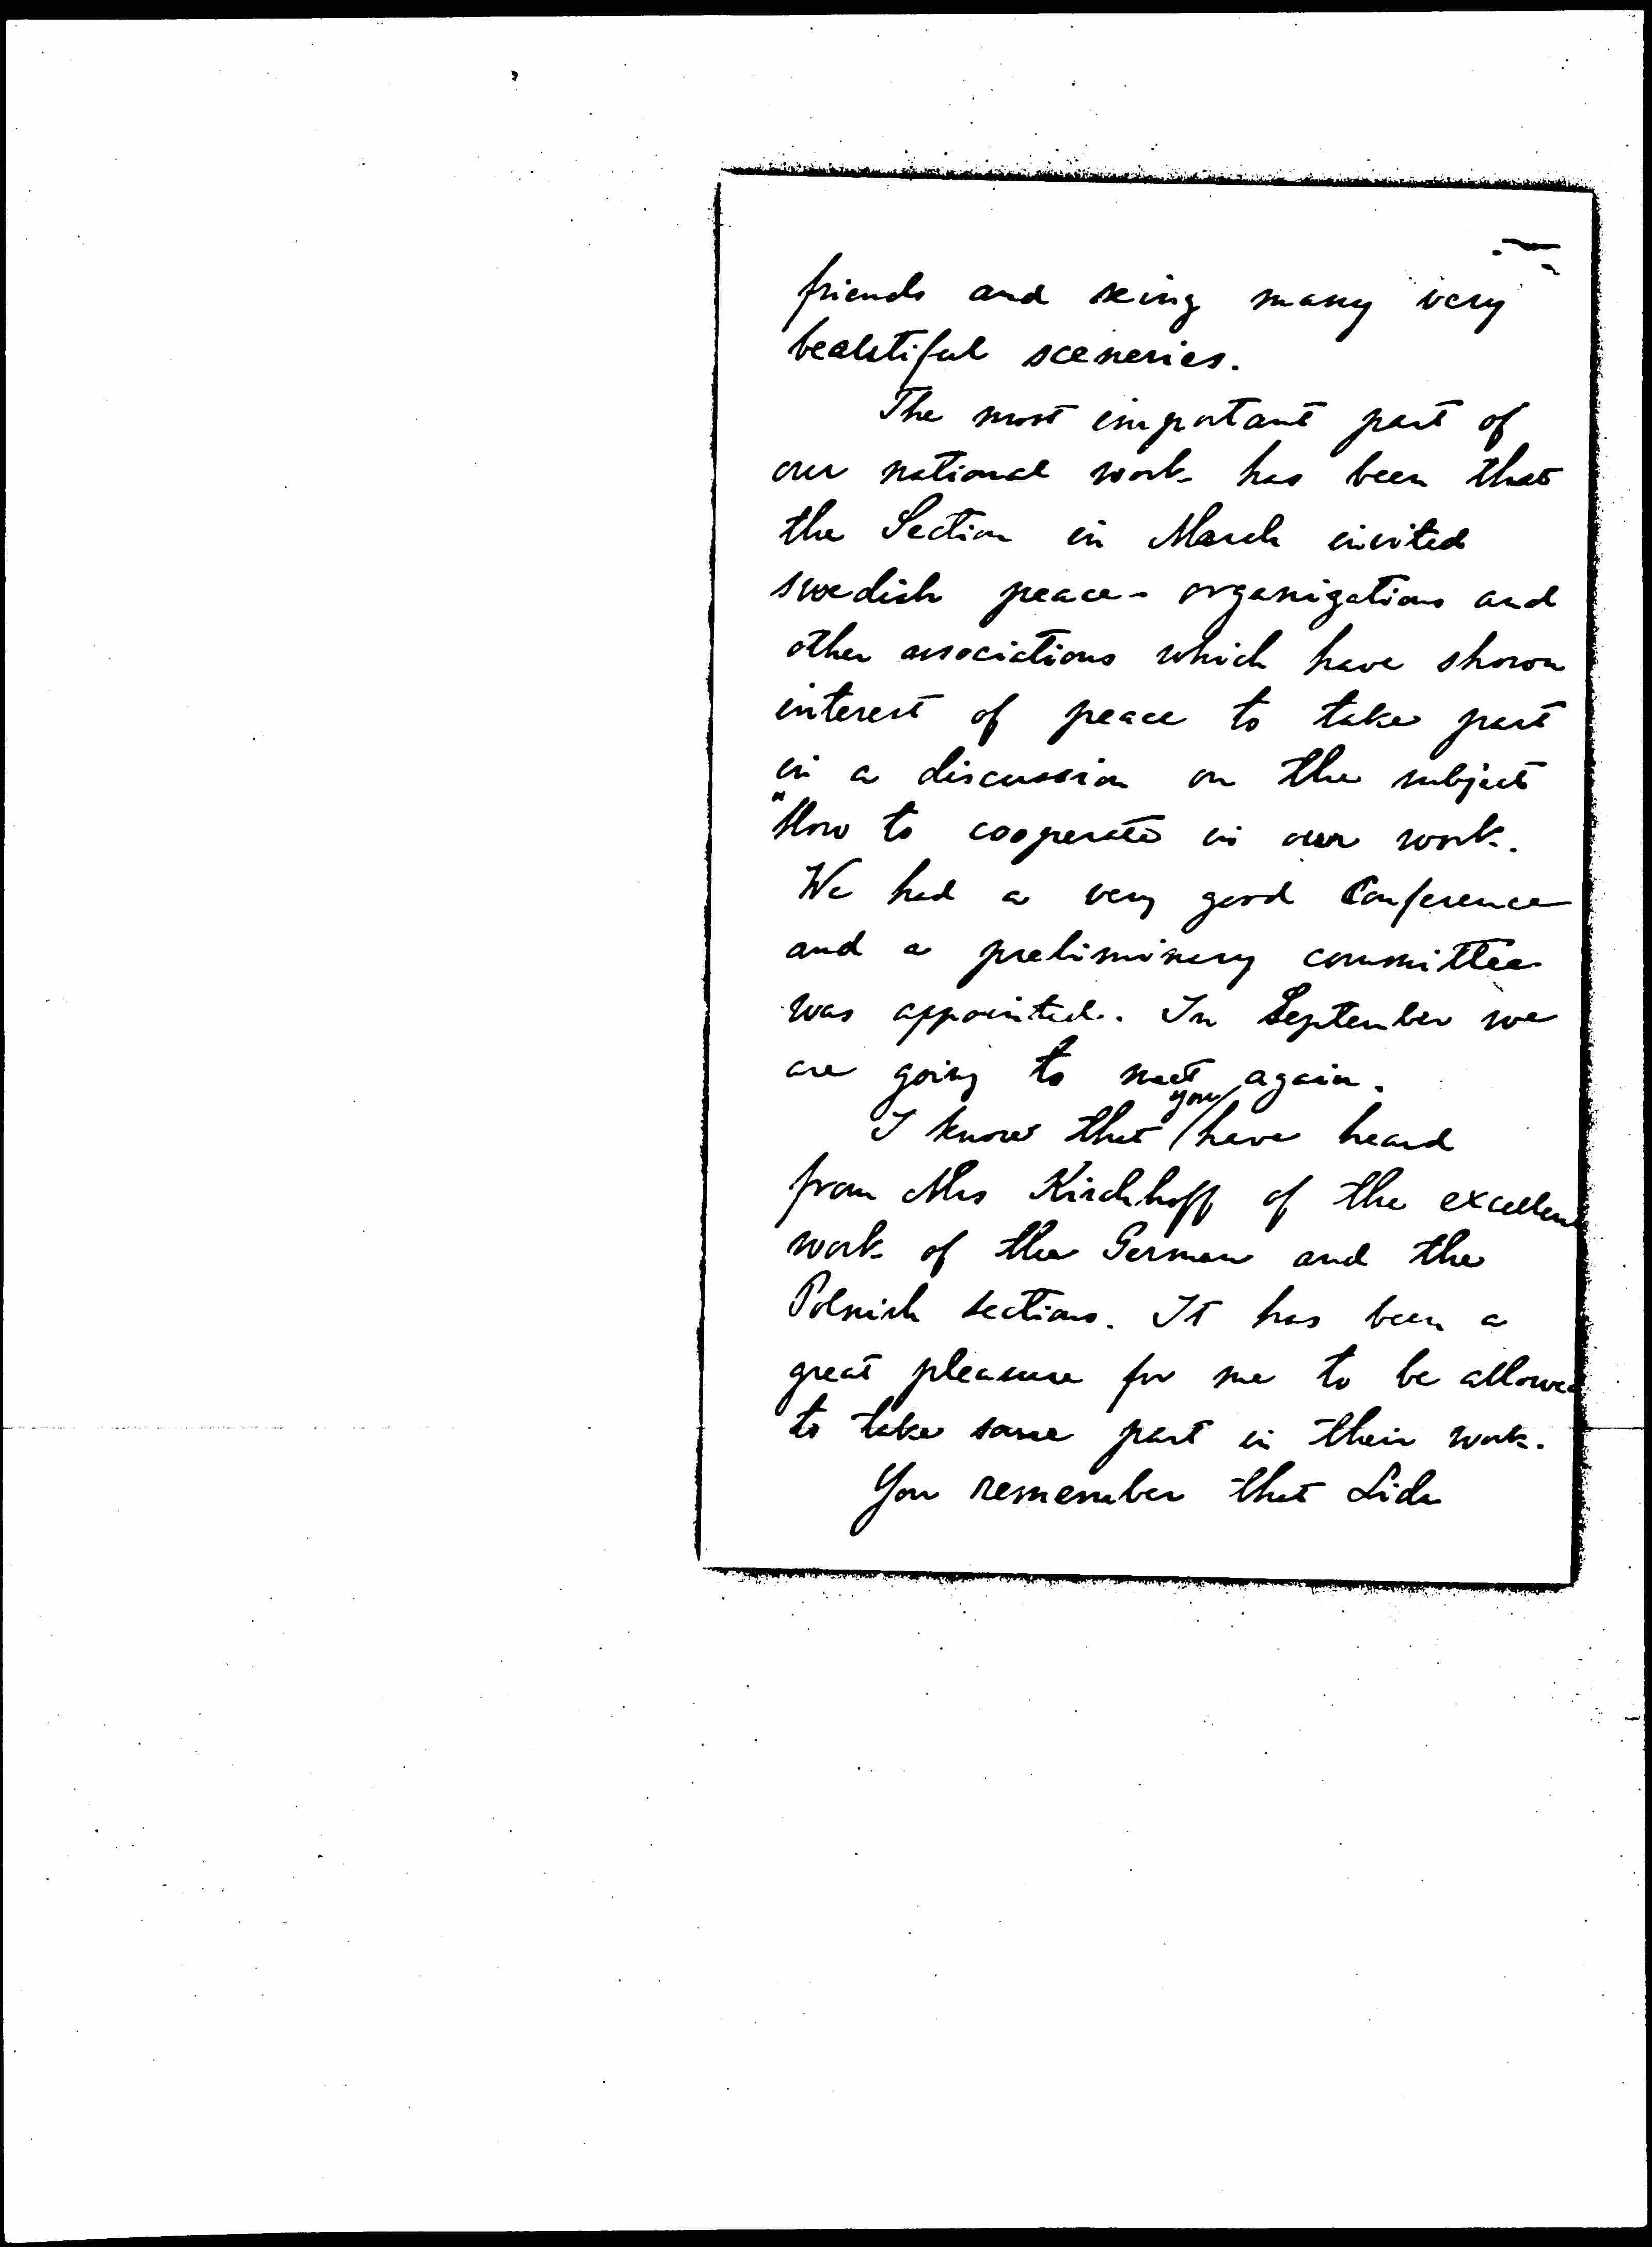 friends and seing many very
beautiful sceneries.
The most important part of
our national work has been that
the Section in March invited
swedish peace-organizations and
other associations which have shown
interest of peace to take part
in a discussion on the subject
"How to cooperate in our work.
We had a very good Conference
and a preliminary committee
was appointed. In September we
are going to meet again.
I know that you have heard
from Mrs Kirchhoff of the excellent
work of the German and the
Polnish sections. It has been a
great pleasure for me to be allowed
to take some part in their work.
You remember that Lida